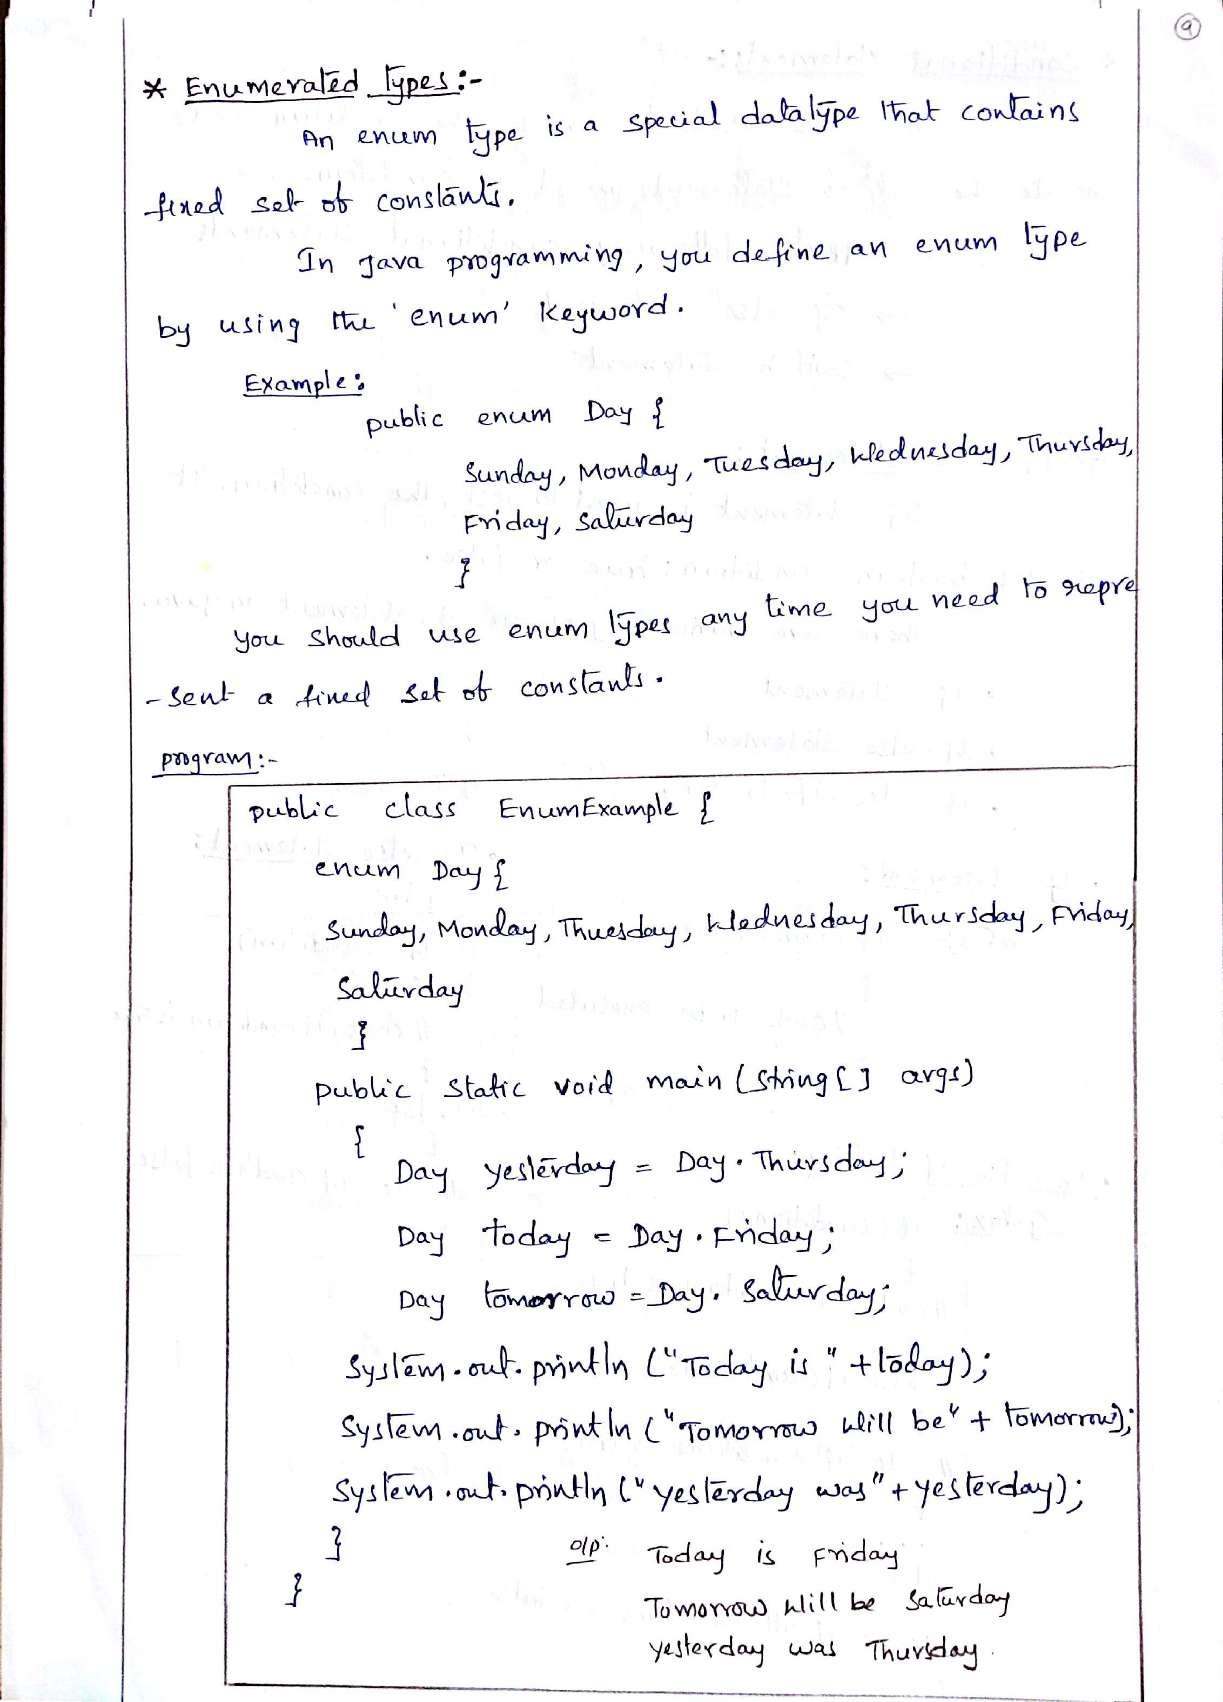 9
* Enumerated Types:-
An enum type is a special datatype that contains
fixed set of constants.
In Java programming, you define an enum type
by using the 'enum' keyword.
Example:
public enum Day {
Sunday, Monday, Tuesday, Wednesday, Thursday,
Friday, Saturday
}
you should use enum types any time you need to repre
-sent a fixed set of constants.
program:-
public class EnumExample {
enum Day {
Sunday, Monday, Thuesday, Wednesday, Thursday, Friday,
Saturday
}
public static void main (String [] args)
{
Day yesterday = Day.Thursday;
Day today = Day.Friday;
Day tomorrow = Day.Saturday;
System.out.println ("Today is " + today);
System.out.println ("Tomorrow will be" + tomorrow);
System.out.println ("yesterday was" + yesterday);
}
o/p: Today is Friday
}
Tomorrow will be Saturday
yesterday was Thursday.